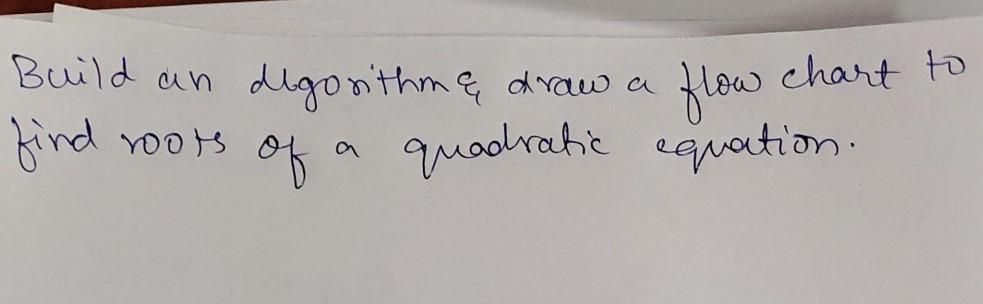 Build an algorithm & draw a flow chart to
find roots of a quadratic equation.